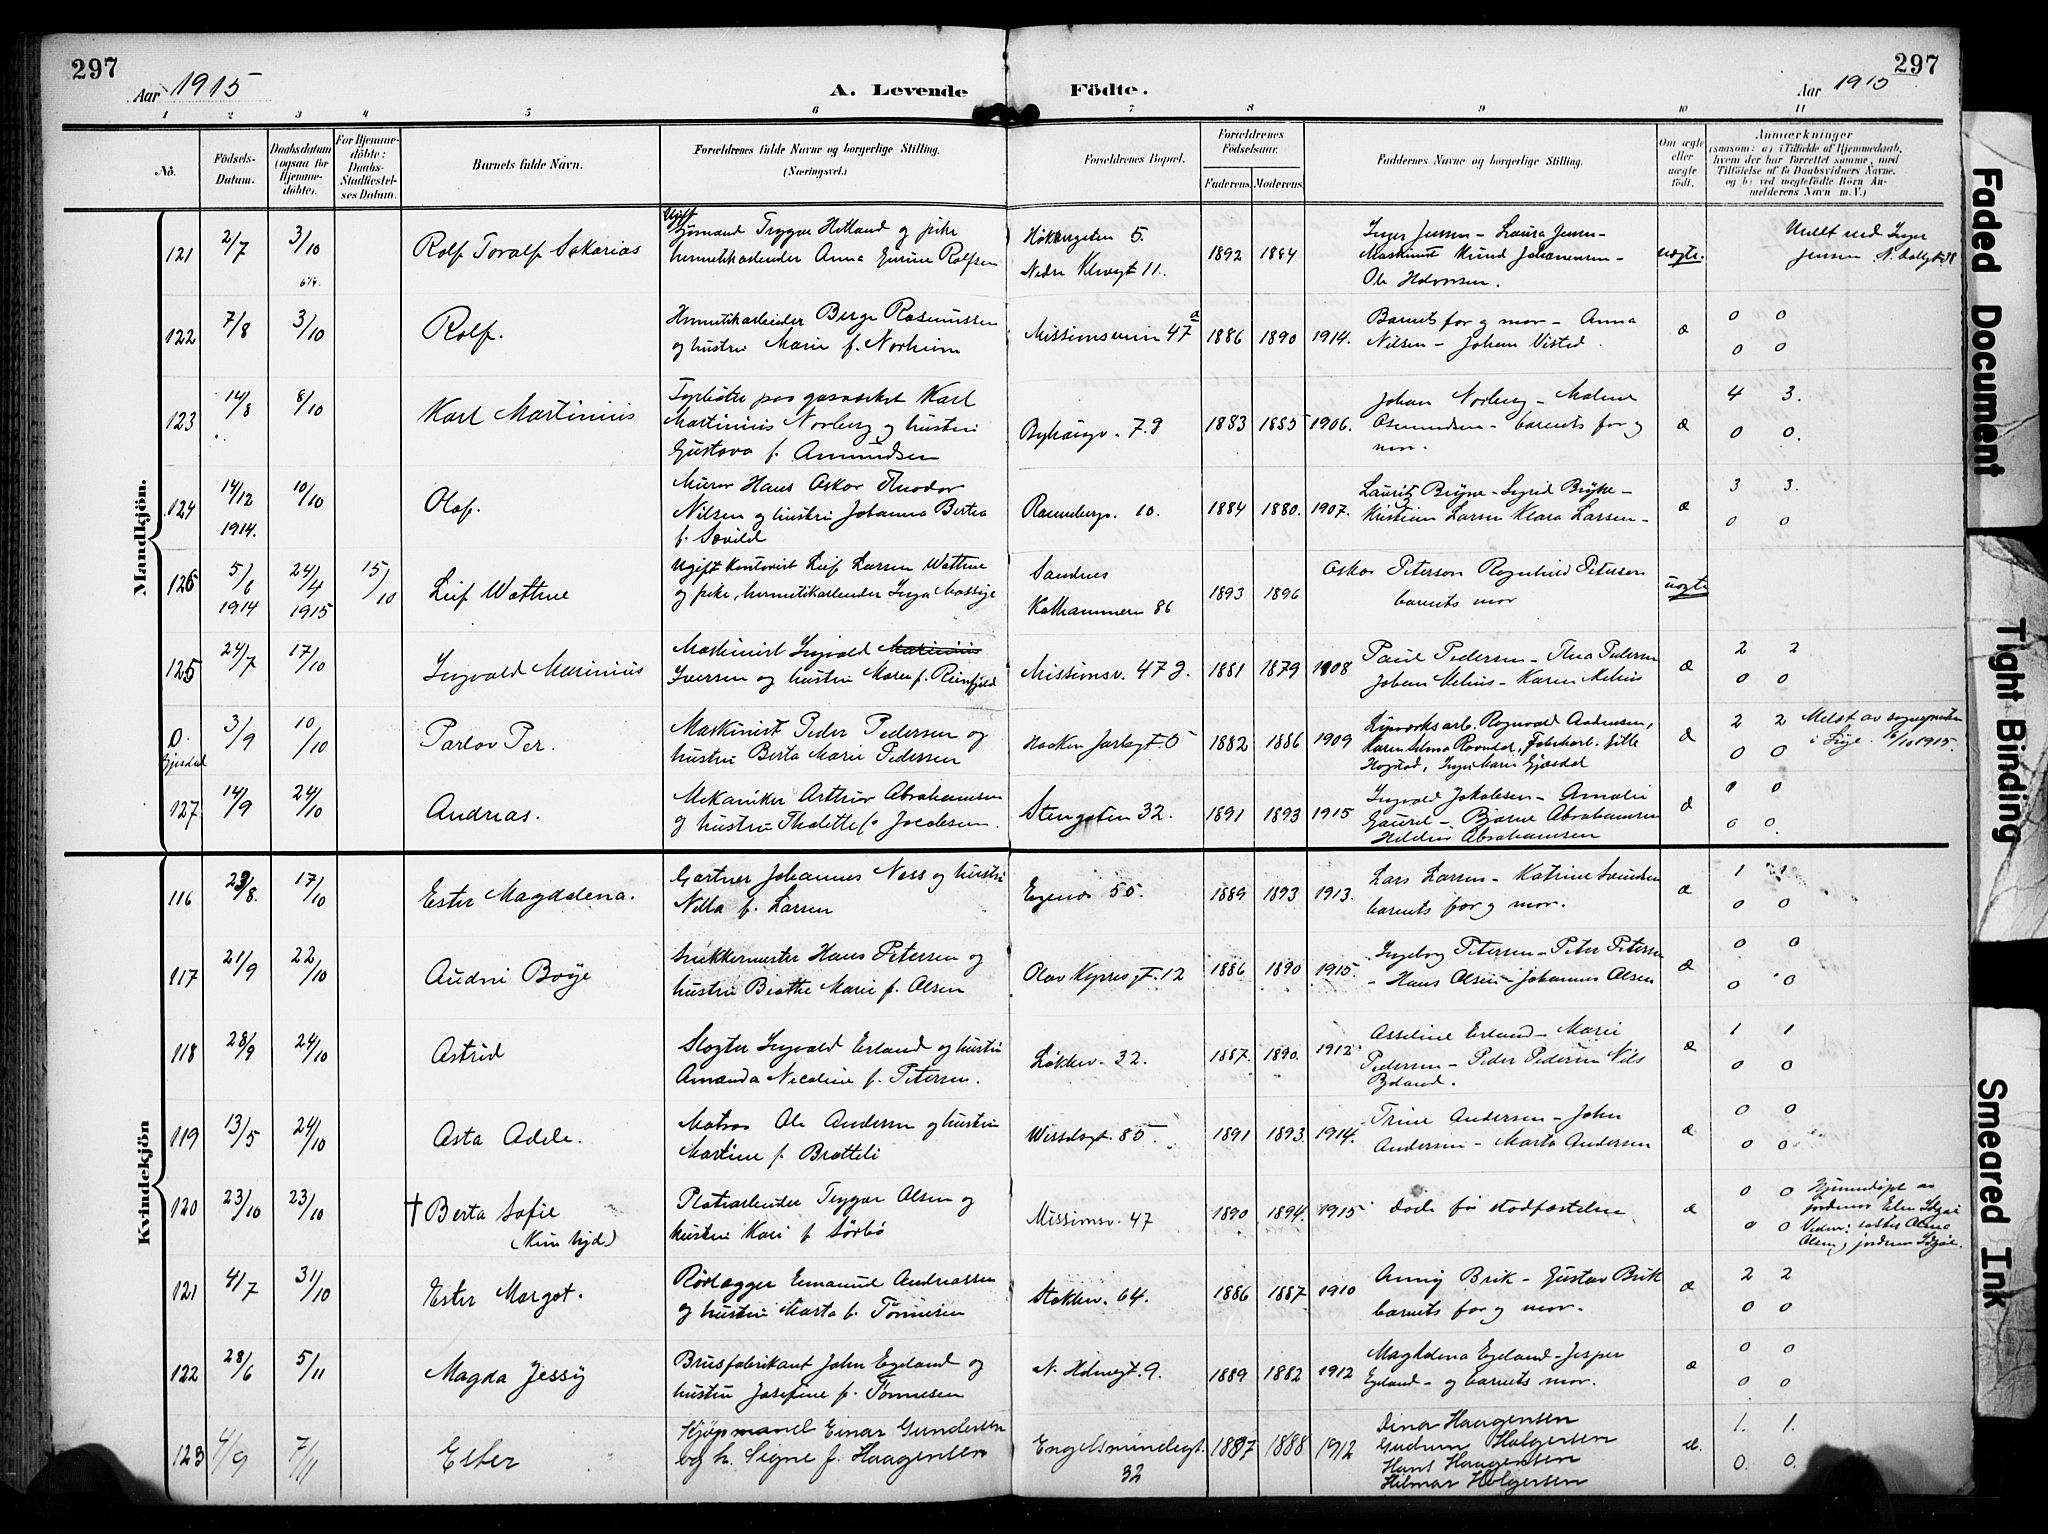 297
Aar 1915
A. Levende Födte.
Aar 1915
297
1 2 3 4 5 6 7 8 9 10 11
No.
Födsels-
Datum.
Daabsdatum
(ogsaa for
Hjemme-
döbte).
For Hjemme-
döbte:
Daabs-
Stadfæstel-
ses Datum.
Barnets fulde Navn.
Forældrenes fulde Navne og borgerlige Stilling.
(Næringsvei.)
Forældrenes Bopæl.
Forældrenes
Födselsaar.
Faderens. Moderens.
Faddernes Navne og borgerlige Stilling.
Om ægte
eller
uægte
födt.
Anmærkninger
(saasom: a) i Tilfælde af Hjemmedaab,
hvem der har forrettet samme, med
Tilföielse af to Daabsvidners Navne,
og b) ved uegtefödte Börn An-
melderens Navn m. V.)
Mandkjön.
121 2/7 3/10 Rolf Toralf Sakarias
Ugift
Trygve Hetland og pike
hermetikarbeider Anna Gurine Rolfsen
5.
Nedre 11.
1892 1884
Inger Jensen - Laura Jensen -
Johannensen -
Ole
uægte.
Meldt ved Inger
Jensen
122 7/8 3/10 Rolf.
Hermetikarbeider Berge Rasmussen
og hustru Marie f. Norheim
Missionsveien 47 a
1886 1890 1914.
Barnets far og mor - Anna
Nilsen - Johan Visted.
æ
0 0
0 0
123 14/8 8/10 Karl Martinius
Fyrbøter paa gasverket Karl
Martinius Norberg og hustru
Gustava f. Amundsen
Byhaugv. 7.g
1883 1885 1906.
Johan Norberg - Malene
Asmundsen - barnets far og
mor.
æ
4 3.
0 0.
124 14/12 1914. 10/10 Olaf.
Murer Hans Oskar Theodor
Nilsen og hustru Johanna Berta
f. Sævild
10.
1884 1880. 1907.
Laurits Bryne - Sigrid Bryne -
Kristian Larsen Klara Larsen -
æ
3 3.
0 0
126 5/6 1914 24/4 1915 15/10 Leif Wathne
Ugift kontorist Leif Larsen Wathne
og pike, hermetikarbeider Inga Mossige
Sandnes
Kalhammeren 86
1893 1896
Oskar Peterson Ragnhild Peterson
barnets mor
uægte
125 24/7 17/10 Ingvald Marinius
Maskinist Ingvald Marinius
Iversen og hustru Maren f. Reinfjeld
Missionsv. 47 g.
1881 1879 1908
Paul Pedersen - Thea Pedersen
Johan Melius - Karen Melius
æ
2 2
0 0
0. Gjesdal 3/9 10/10 Parlov Per.
Maskinist Peder Pedersen og
hustru Berta Marie Pedersen
Haakon Jarlsgt. 5
1882 1886 1909
Ragnvald Andreassen,
Karen Selma Ravndal,
Hogstad, Inga Marie Gjesdal
æ
2 2
0 0
Meldt av sognepresten
i Lye. 16/10 1915.
127 14/9 24/10 Andreas.
Mekaniker Arthur Abrahamsen
og hustru Thalette f. Jacobsen.
Stengaten 32.
1891 1893 1915
Ingvald Jakobsen - Amalie
Gausel - Bjarne Abrahamsen
Abrahamsen
æ
0 0
0 0.
Kvindekjön
116 23/8. 17/10 Ester Magdalena.
Gartner Johannes Ness og hustru
Nilla f. Larsen
Egenes 55.
1889 1893 1913.
Lars Larsen - Katrine Svendsen
barnets far og mor.
æ
1 1
0 0
117 21/9 22/10 Audni Boye
Snekkermester Hans Petersen og
hustru Beathe Marie f. Olsen
Olav Kyrres gt. 12
1886 1890 1915.
Ingeborg Petersen - Peter Petersen
- Hans Olsen - Johannes Olsen
æ
0 0
0 0
118 28/9 24/10 Astrid
Slagter Ingvald Erland og hustru
Amanda Nicoline f. Petersen.
Løkkev. 32.
1887. 1890. 1912.
Asseline Erland - Marie
Pedersen - Peder Pedersen Nils
æ
1 1
0 0
119 13/5 24/10 Asta Adele.
Matros Ole Andersen og hustru
Martine f. Bratteli
85.
1891 1893. 1914.
Trine Andersen - John
Andersen - Marta Andersen
æ
0 0
0 0
120 23/10 23/10 † Berta Sofie
Trygve Olsen og
hustru Kari f. Sørbø
Missionsv. 47
1890 1894. 1915
Døde før stadfæstelse.
æ
0 0
0 0
Hjemmedøpt av
jordmor Elen
Vidner: Olsen, jordmor
121 4/7 31/10 Ester Margot.
Rørlægger Emanuel Andreassen
og hustru Marta f. Tønnesen
Stokkev. 64.
1886 1887 1910
Anny Brik - Gustav Brik
barnets far og mor.
æ
2 2
0 0
122 28/6 5/11 Magda Jessy
Brusfabrikant John Egeland og
hustru Josefine f. Tønnesen
N. Holmegt. 9.
1889 1882 1912
Magdalena Egeland - Jesper
Egeland - og barnets mor.
æ
0 0
0 0
123 4/9 7/11 Ester
Kjøpmand Einar Gundersen
og h. Signe f. Haagensen
Engelsmindegt.
32
1887 1888 1912
Dina Haagensen
Gudrun Holgersen
Hans Haagensen
Hilmar Holgersen
æ.
1. 1.
0. 0.
Faded Document
Tight Binding
Smeared Ink